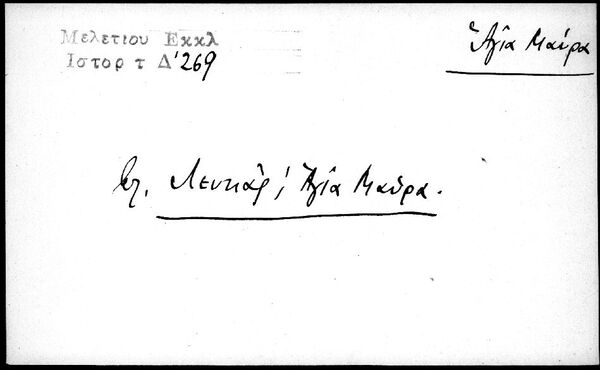 Μελετίου Εκκλ
Ιστορ τ Δ' 269
Ἁγία Μαύρα
Βλ. Λευκὰς / Ἁγία Μαύρα.